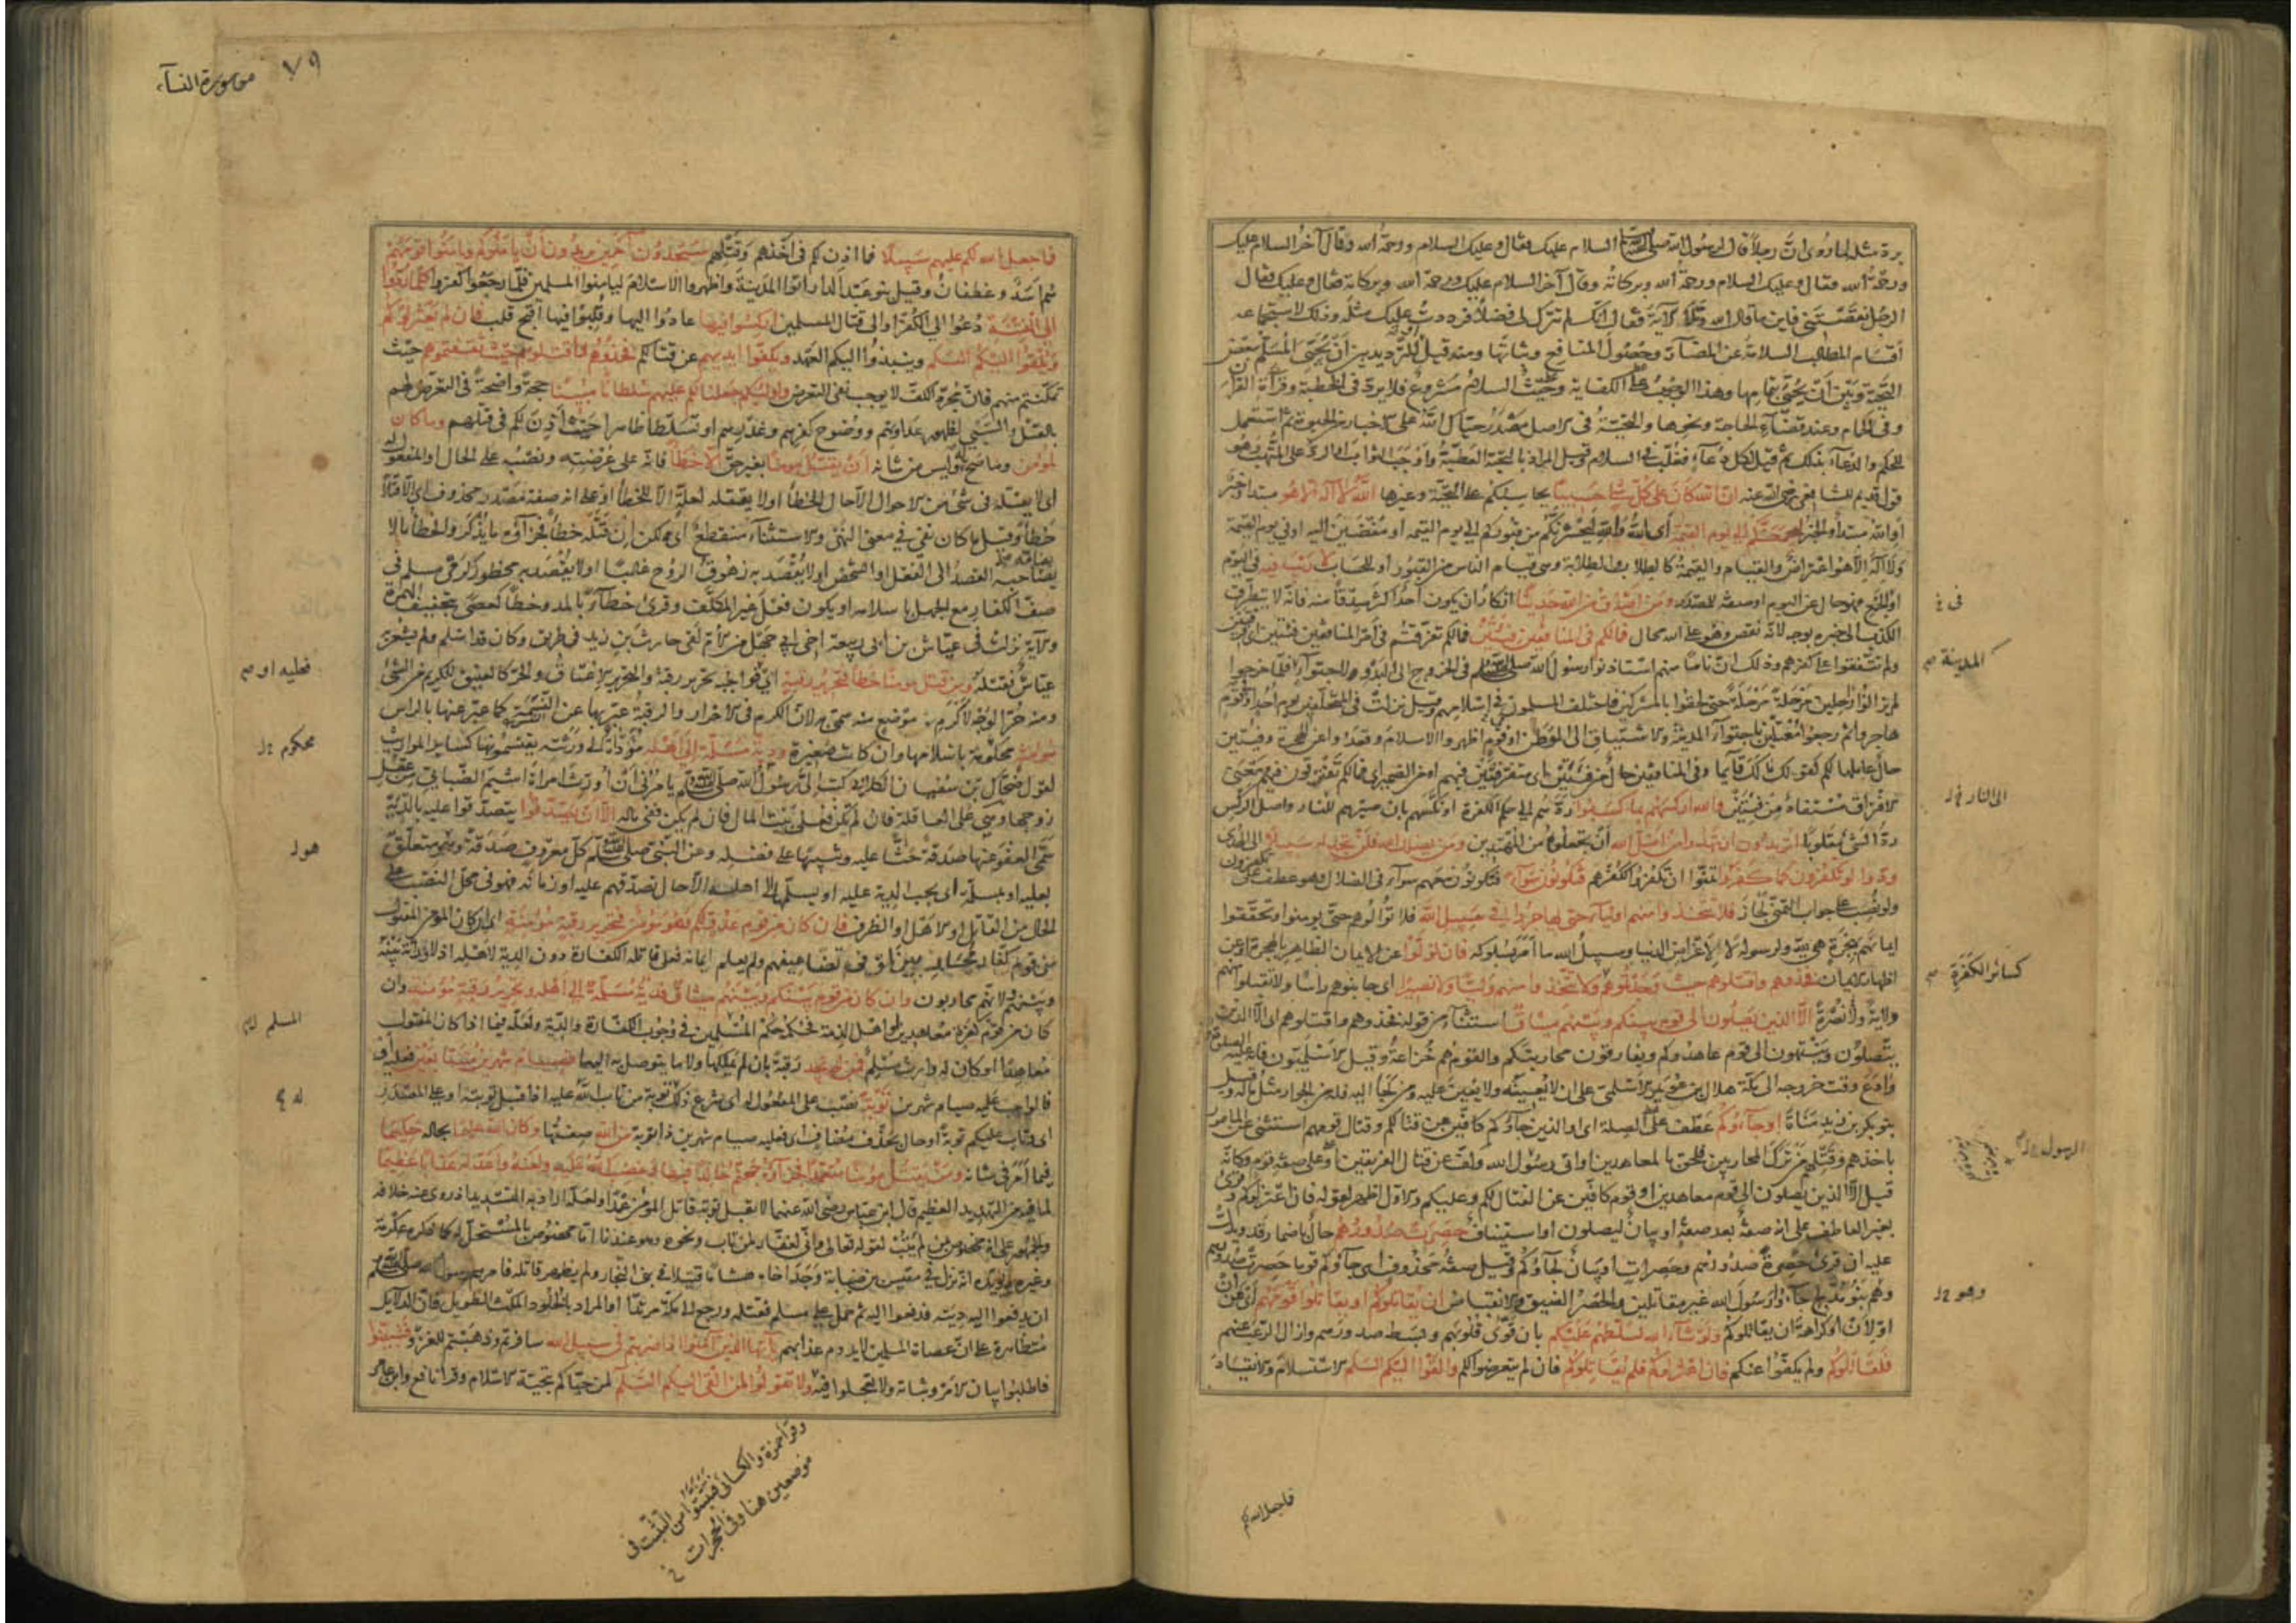 برد مثله لما روى ان رجلا قال لرسول الله صلى الله السلام عليك فقال وعليك السلام ورحمة الله وقال آخر السلام عليك
ورحمة الله فقال وعليك السلام ورحمة الله وبركاته وقال آخر السلام عليك ورحمة الله وبركاته فقال وعليك فقال
الرجل نقصتنى فاين ما قال الله وتلا الآية فقال انك لم تترك لى فضلا فرددت عليك مثله وذلك لاستجماعه
اقسام المطالب السلامة عن المضار وحصول المنافع وثباتها ومنه قيل للترديد بين ان يحيى المسلم ببعض
التحية وبين ان يحيى بتمامها وهذا الوجوب على الكفاية وحيث السلام مشروع فلا يرد فى الخطبة وقرآءة القرآن
وفى الحمام وعند قضآء الحاجة ونحوها والتحية فى الاصل مصدر حياك الله على الاخبار من الحيوة ثم استعمل
للحكم والدعآء بذلك ثم قيل لكل دعآء فغلب فى السلام وقيل المراد بالتحية العطية واوجب الثواب او الرد على المتهب وهو
قول قديم للشافعى رضى الله عنه ان الله كان على كل شئ حسيبا يحاسبكم على التحية وغيرها الله لا اله الا هو مبتدا وخبر
او الله مبتدأ والخبر ليجمعنكم الى يوم القيمة اى الله والله ليحشرنكم من قبوركم الى يوم القيمة او مفضين اليه او فى يوم القيمة
ولا اله الا هو اعتراض والقيام والقيمة كالطلاب والطلابة وهى قيام الناس من القبور او للحساب لا ريب فيه فى اليوم
او الجمع فهو حال عن اليوم او صفة للمصدر ومن اصدق من الله حديثا انكار ان يكون احد اكثر صدقا منه فانه لا يتطرق
الكذب الى خبره بوجه لانه نقص وهو على الله محال فما لكم فى المنافقين فئتين فما لكم تفرقتم فى امر المنافقين فئتين
ولم تتفقوا على كفرهم وذلك ان ناسا منهم استاذنوا رسول الله صلى الله فى الخروج الى البدو لاجتوآء فلما خرجوا
لم يزالوا راحلين مرحلة مرحلة حتى لحقوا بالمشركين فاختلف المسلمون فى اسلامهم وقيل نزلت فى المتخلفين يوم احد او قوم
هاجروا ثم رجعوا معتلين باجتوآء المدينة والاشتياق الى الوطن او قوم اظهروا الاسلام وقعدوا عن الهجرة وفئتين
حال عاملها لكم كقولك مالك قآئما وفى المنافقين حال من فئتين اى متفرقتين فيهم او من الضمير اى فما لكم تفترقون فيهم ومعنى
الافتراق مستفاد من فئتين والله اركسهم بما كسبوا ردهم الى حكم الكفرة او نكسهم بان صيرهم للنار واصل الركس
رد الشئ مقلوبا اتريدون ان تهدوا من اضل الله ان تجعلوه من المهتدين ومن يضلل الله فلن تجد له سبيلا الى الهدى
ودوا لو تكفرون كما كفروا تمنوا ان تكفروا ككفرهم فتكونون سوآء فتكونون معهم سوآء فى الضلال وهو عطف على تكفرون
ولو نصب على جواب التمنى لجاز فلا تتخذوا منهم اوليآء حتى يهاجروا فى سبيل الله فلا توالوهم حتى يومنوا وتحققوا
ايمانهم بهجرة هى لله ولرسوله لا لاغراض الدنيا وسبيل الله ما امر بسلوكه فان تولوا عن الايمان الظاهر بالهجرة او عن
اظهار الايمان فخذوهم واقتلوهم حيث وجدتموهم ولا تتخذوا منهم وليا ولا نصيرا اى جانبوهم راسا ولا تقبلوا منهم
ولاية ولا نصرة الا الذين يصلون الى قوم بينكم وبينهم ميثاق استثنآء من قوله فخذوهم واقتلوهم اى الا الذين
يتصلون وينتهون الى قوم عاهدوكم ويفارقون محاربتكم والقوم هم خزاعة وقيل الاسلميون فانه عليه السلام
وادع وقت خروجه الى مكة هلال بن عويمر الاسلمى على ان لا يعينه ولا يعين عليه ومن لجأ اليه فله من الجوار مثل ماله وقيل
بنو بكر بن زيد مناة او جآءوكم عطف على الصلة اى او الذين جآؤكم كافين عن قتالكم وقتال قومهم استثنى عن المامور
باخذهم وقتلهم من ترك المحاربين فلحق بالمعاهدين او اتى رسول الله وكف عن قتال الفريقين او على صفة قوم وكانه
قيل الا الذين يصلون الى قوم معاهدين او قوم كافين عن القتال لكم وعليكم والاول اظهر لقوله فان اعتزلوكم وقرئ
بغير العاطف على انه صفة بعد صفة او بيان ليصلون او استيناف حصرت صدورهم حال باضمار قد ويدل
عليه ان قرئ حصرة صدورهم وحصرات او بيان لجآؤكم وقيل صفة محذوف اى جآؤكم قوما حصرت صدورهم
وهم بنو مدلج جآءوا رسول الله غير مقاتلين والحصر الضيق والانقباض ان يقاتلوكم او يقاتلوا قومهم اى عن ان
او لان او كراهة ان يقاتلوكم ولو شآء الله لسلطهم عليكم بان قوى قلوبهم وبسط صدورهم وازال الرعب عنهم
فلقاتلوكم ولم يكفوا عنكم فان اعتزلوكم فلم يقاتلوكم فان لم يتعرضوا لكم والقوا اليكم السلم الاستسلام والانقياد
فى
المدينة صح
الى النار
كسائر الكفرة صح
الرسول
وهو
فما جعل الله لكم
٧٩
من سورة النسآء
فما جعل الله لكم عليهم سبيلا فما اذن لكم فى اخذهم وقتلهم ستجدون آخرين يريدون ان يامنوكم ويامنوا قومهم
هم اسد وغطفان وقيل بنو عبد الدار اتوا المدينة واظهروا الاسلام ليامنوا المسلمين فلما رجعوا كفروا كلما ردوا
الى الفتنة دعوا الى الكفر او الى قتال المسلمين اركسوا فيها عادوا اليها وقلبوا فيها اقبح قلب فان لم يعتزلوكم
ويلقوا اليكم السلم وينبذوا اليكم العهد ويكفوا ايديهم عن قتالكم فخذوهم واقتلوهم حيث ثقفتموهم حيث
تمكنتم منهم فان مجرد الكف لا يوجب نفى التعرض واولئكم جعلنا لكم عليهم سلطانا مبينا حجة واضحة فى التعرض لهم
بالقتل والسبى لظهور عداوتهم ووضوح كفرهم وغدرهم او تسلطا ظاهرا حيث اذن لكم فى قتلهم وما كان
لمؤمن وما صح له وليس من شانه ان يقتل مومنا بغير حق الا خطأ فانه على عرضته ونصبه على الحال او المفعول له
اى لا يقتله فى شئ من الاحوال الا حال الخطأ او لا يقتله لعلة الا للخطأ او على انه صفة مصدر محذوف اى الا قتلا
خطأ وقيل ما كان نفى فى معنى النهى والاستثنآء منقطع اى لكن ان قتله خطأ فجزآؤه ما يذكر والخطأ ما لا
يصاحبه القصد الى الفعل او الشخص او لا يقصد به زهوق الروح غالبا او لا يقصد به محظور كرمى مسلم فى
صف الكفار مع الجهل باسلامه او يكون فعل غير المكلف وقرئ خطآء بالمد وخطا كعصى بتخفيف الهمزة
والآية نزلت فى عياش بن ابى ربيعة اخى ابى جهل من الام لقى حارث بن زيد فى طريق وكان قد اسلم ولم يشعر به
عياش فقتله ومن قتل مومنا خطأ فتحرير رقبة اى فواجبه تحرير رقبة والتحرير الاعتاق والحر كالعتيق للكريم من الشئ
ومنه حر الوجه لاكرم موضع منه سمى به لان الكرم فى الاحرار والرقبة عبر بها عن النسمة كما عبر عنها بالراس
مومنة محكومة باسلامها وان كانت صغيرة ودية مسلمة الى اهله مؤداة الى ورثته يقتسمونها كسائر المواريث
لقول ضحاك بن سفيان الكلابى كتب الى رسول الله صلى الله يامرنى ان اورث امراة اشيم الضبابى من عقل
زوجها وهى على العاقلة فان لم يكن فعلى بيت المال فان لم يكن ففى ماله الا ان يصدقوا يتصدقوا عليه بالدية
سمى العفو عنها صدقة حثا عليه وتنبيها على فضله وعن النبى صلى الله كل معروف صدقة وهو متعلق
بعليه او بمسلمة اى يجب الدية عليه او يسلمها الى اهله الا حال تصدقهم عليه او زمانه فهو فى محل النصب على
الحال من القاتل او الاهل او الظرف فان كان من قوم عدو لكم وهو مؤمن فتحرير رقبة مؤمنة اى ان كان المؤمن المقتول
من قوم كفار محاربين او فى تضاعيفهم ولم يعلم ايمانه فعلى قاتله الكفارة دون الدية لاهله اذ لا وراثة بينه
وبينهم لانهم محاربون وان كان من قوم بينكم وبينهم ميثاق فدية مسلمة الى اهله وتحرير رقبة مؤمنة وان
كان من قوم كفرة معاهدين او اهل الذمة فحكمه حكم المسلمين فى وجوب الكفارة والدية ولعله فيما اذا كان المقتول
معاهدا او كان له وارث مسلم فمن لم يجد رقبة بان لم يملكها ولا ما يتوصل به اليها فصيام شهرين متتابعين فعليه او
فالواجب عليه صيام شهرين توبة نصب على المفعول له اى شرع ذلك توبة من تاب الله عليه اذا قبل توبته او على المصدر
اى وتاب عليكم توبة او حال بحذف مضاف اى فعليه صيام شهرين ذا توبة من الله صفتها وكان الله عليما بحاله حكيما
فيما امر فى شانه ومن يقتل مؤمنا متعمدا فجزآؤه جهنم خالدا فيها وغضب الله عليه ولعنه واعد له عذابا عظيما
لما فيه من التهديد العظيم قال ابن عباس رضى الله عنهما لا يقبل توبة قاتل المؤمن عمدا ولعله اراد به التشديد اذ روى عنه خلافه
والجمهور على انه مخصوص بمن لم يتب لقوله تعالى وانى لغفار لمن تاب ونحوه وهو عندنا اما مخصوص بالمستحل له كما ذكره عكرمة
وغيره ويؤيده انه نزل فى مقيس بن ضبابة وجد اخاه هشاما قتيلا فى بنى النجار ولم يظهر قاتله فامرهم رسول الله صلى الله
ان يدفعوا اليه ديته فدفعوا اليه ثم حمل على مسلم فقتله ورجع الى مكة مرتدا او المراد بالخلود المكث الطويل فان الدلائل
متظاهرة على ان عصاة المسلمين لا يدوم عذابهم يا ايها الذين آمنوا اذا ضربتم فى سبيل الله سافرتم وذهبتم للغزو فتبينوا
فاطلبوا بيان الامر وثباته ولا تعجلوا فيه ولا تقولوا لمن القى اليكم السلم لمن حياكم بتحية الاسلام وقرأ نافع وابن عامر
فعليه او صح
محكوم
هو
المسلم
له
وقرأ حمزة والكسائى فتثبتوا من التثبت فى
موضعين هنا وفى الحجرات